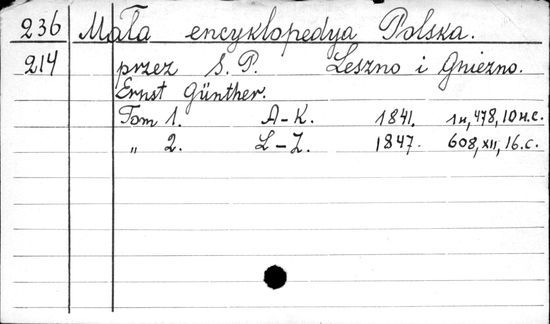 236 Mała encyklopedya Polska.
214 przez S. P. Leszno i Gniezno.
Ernst Günther.
Tom 1. A-K. 1841. 478, 10 н.с.
„ 2. L-Z. 1847. 608, XII, 16.c.